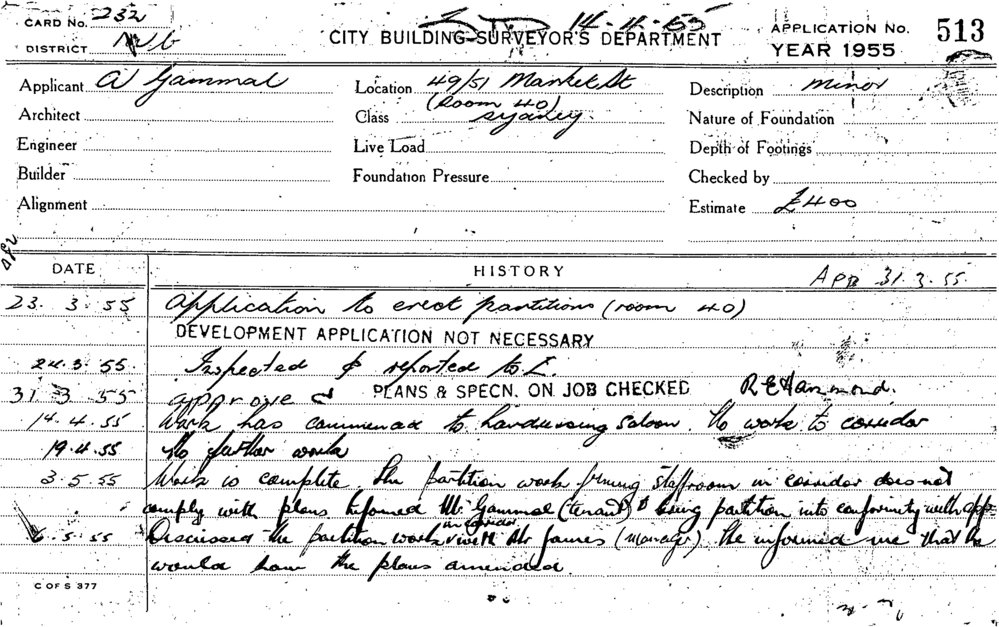 CARD No. 232
14.4.55
DISTRICT
CITY BUILDING SURVEYOR'S DEPARTMENT
APPLICATION No. 513
YEAR 1955
Applicant A Gammal
Location 49/51 Market St
(Room 40)
Description minor
Architect
Class Sydney.
Nature of Foundation
Engineer
Live Load
Depth of Footings
Builder
Foundation Pressure
Checked by
Alignment
Estimate £400
DATE
HISTORY
APP 31.3.55.
23.3.55 Application to erect partitions (room 40)
DEVELOPMENT APPLICATION NOT NECESSARY
24.3.55. Inspected & reported to
31 3 55 approve PLANS & SPECN. ON JOB CHECKED R E Hammond.
14.4.55 Work has commenced to hairdressing saloon. No work to corridor
19.4.55 No further work
3.5.55 Work is complete. The partition work forming staffroom in corridor does not
comply with plans Informed Mr Gammal (tenant) to bring partition into conformity with app.
6.5.55 Discussed the partition work in corridor with Mr James (manager) He informed me that he
would have the plans amended
C OF S 377